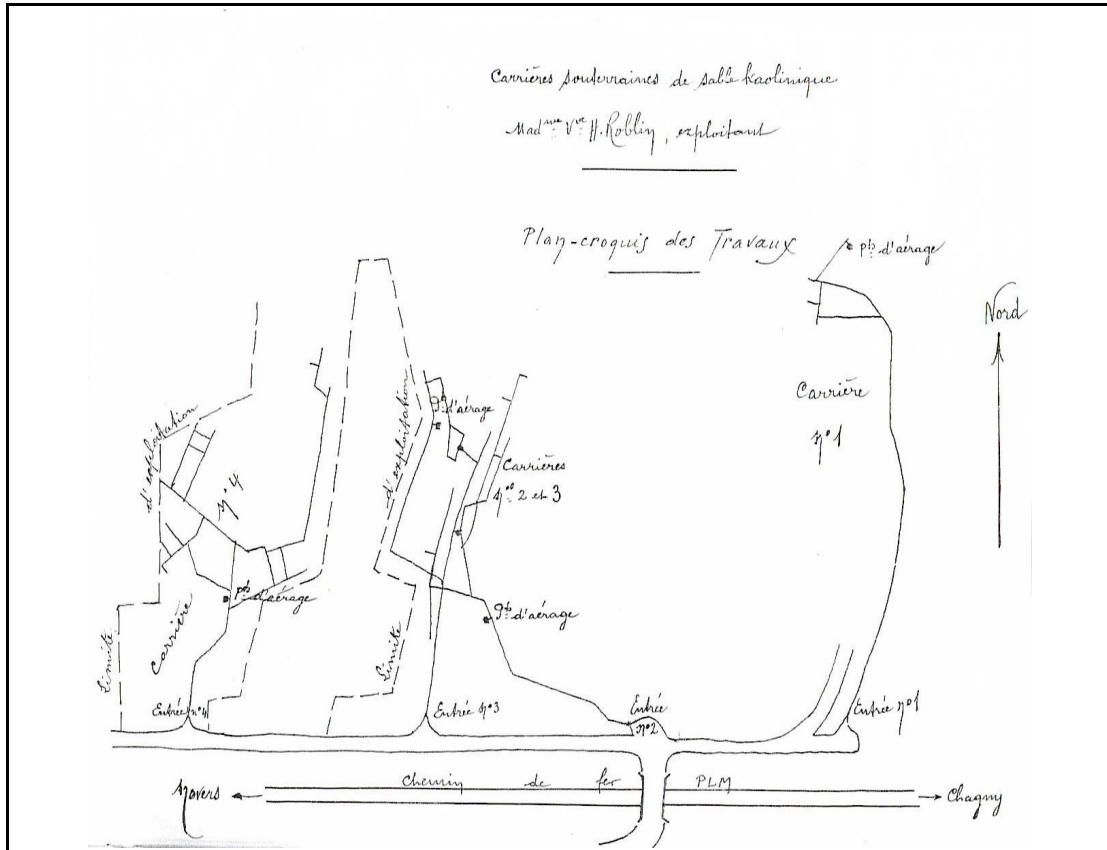 Carrières souterraines de sable kaolinique
Mad^me V^ve H. Roblin, exploitant
Plan-croquis des Travaux
p^ts d'aérage
Nord
Carrière
n° 1
d'exploitation
n° 4
p^ts d'aérage
Carrière
Limite
d'exploitation
Limite
d'aérage
Carrières
n^os 2 et 3
p^ts d'aérage
Entrée n° 4
Entrée n° 3
Entrée
n° 2
Entrée n° 1
Chemin de fer PLM
Nevers
Chagny